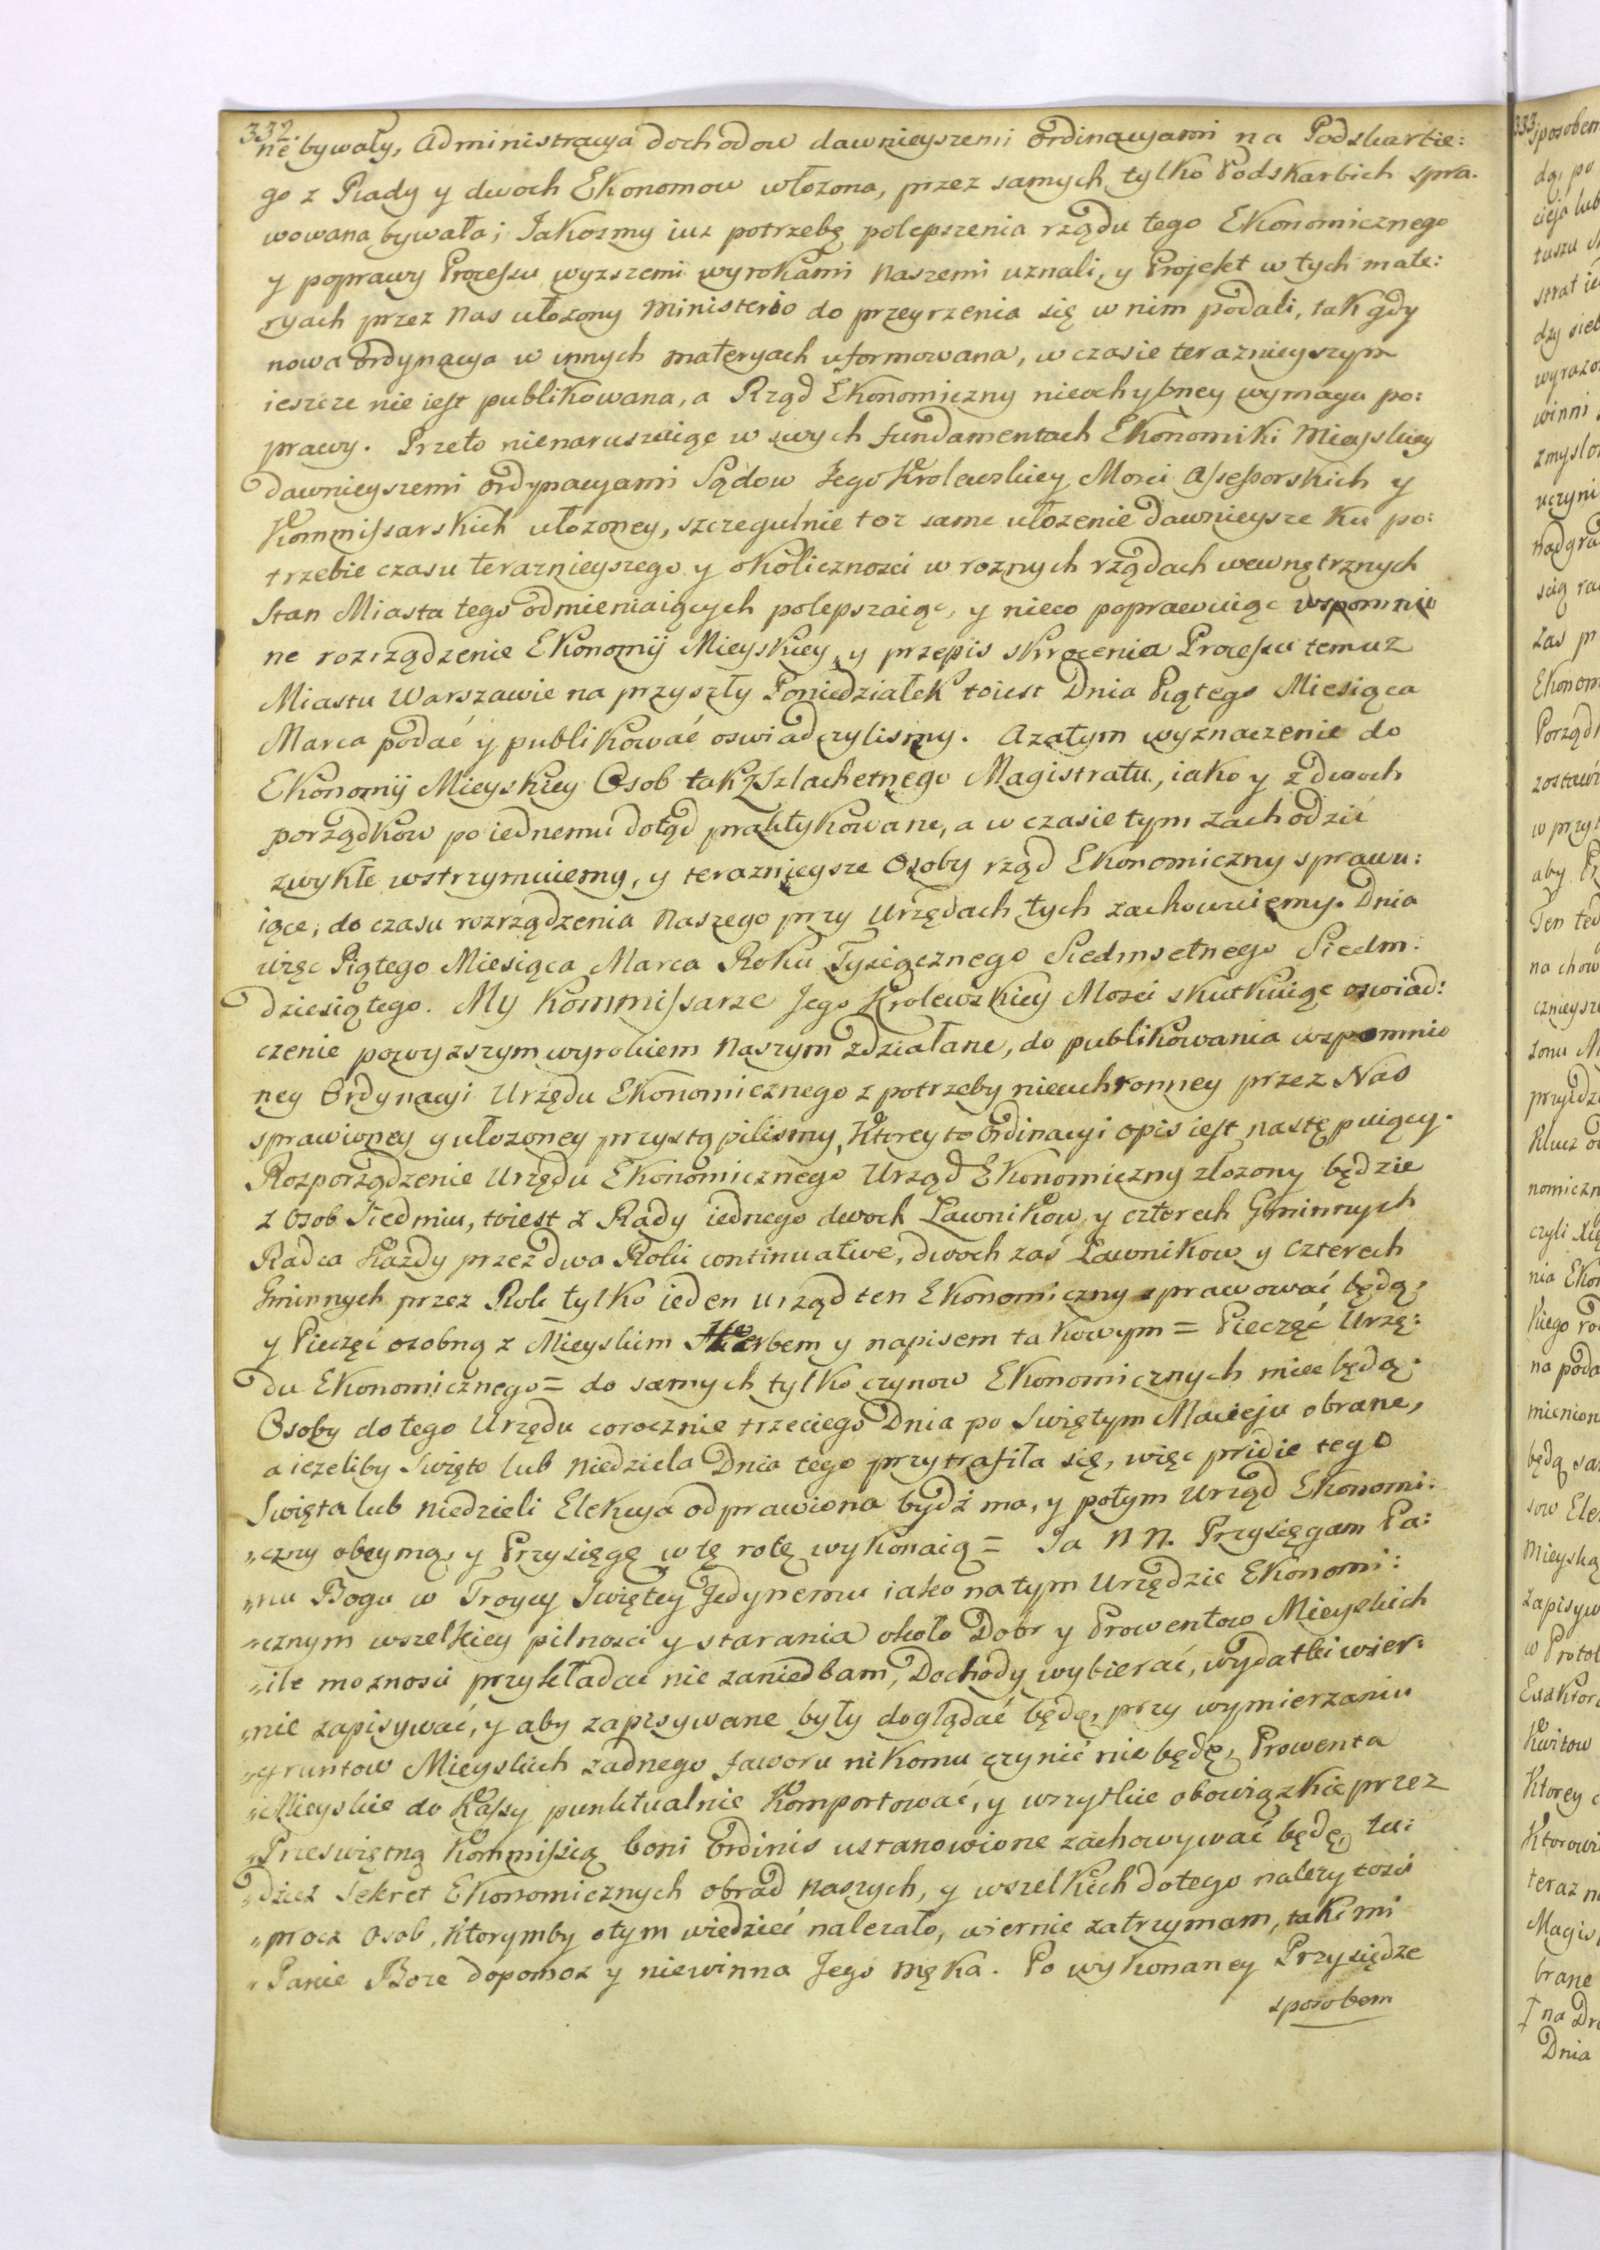 332.
ne bywały, Administracya dochodow dawnieyszemi Ordinacyami na Podskarbie:
go z Rady y dwoch Ekonomow włozona, przez samych tylko Podskarbich spra.
wowana bywała; Jakosmy iuz potrzebę polepszenia rządu tego Ekonomicznego
y poprawy Processu wyzszemi wyrokami Naszemi uznali, y Projekt w tych mate:
ryach przez Nas ułozony Ministerio do przeyrzenia się w nim podali, tak gdy
nowa Ordynacya w innych materyach uformowana, w czasie teraznieyszym
ieszcze nie iest publikowana, a Rząd Ekonomiczny nieochybney wymaga po:
prawy. Przeto nienaruszaiąc w swych fundamentach Ekonomiki Mieyskiey
dawnieyszemi Ordynacyami Sądow Jego Krolewskiey Mosci Assessorskich y
Kommissarskich ułozoney, szczegulnie toz same ułozenie dawnieysze ku po:
trzebie czasu teraznieyszego y okolicznosci w roznych rządach wewnętrznych
Stan Miasta tego odmieniaiących polepszaiąc, y nieco poprawuiąc wspomnio
ne rozrządzenie Ekonomij Mieyskiey, y przepis skrocenia Processu temuz
Miastu Warszawie na przyszły Poniedziałek toiest Dnia Piątego Miesiąca
Marca podać y publikować oswiadczylismy. Azatym wyznaczenie do
Ekonomij Mieyskiey Osob tak z Szlachetnego Magistratu, iako y z dwoch
porządkow po iednemu dotąd praktykowane, a w czasie tym zachodzić
zwykłe wstrzymuiemy, y teraznieysze Osoby rząd Ekonomiczny sprawu:
iące, do czasu rozrządzenia Naszego przy Urzędach tych zachowuiemy. Dnia
więc Piątego Miesiąca Marca Roku Tysiącznego Siedmsetnego Siedm:
dziesiątego. My Kommissarze Jego Krolewskiey Mosci skutkuiąc oswiad:
czenie powyzszym wyrokiem Naszym zdziałane, do publikowania wspomnio
ney Ordynacyi Urzędu Ekonomicznego z potrzeby nieuchronney przez Nas
sprawioney y ułozoney przystąpilismy, Ktorey to Ordinacyi opis iest następuiący.
Rozporządzenie Urzędu Ekonomicznego, Urząd Ekonomiczny złozony będzie
z Osob Siedmiu, toiest z Rady iednego dwoch Ławnikow y czterech Gminnych
Radca Kazdy przez dwa Roki continuative, dwoch zaś Ławnikow y Czterech
Gminnych przez Rok tylko ieden Urząd ten Ekonomiczny sprawować będą,
y Pieczęć osobną z Mieyskim Herbem y napisem takowym = Pieczęć Urzę:
du Ekonomicznego = do samych tylko czynow Ekonomicznych miec będą.
Osoby do tego Urzędu corocznie trzeciego Dnia po Swiętym Macieju obrane,
a iezeliby Swięto lub Niedziela Dnia tego przytrafiła się, więc pridie tego
Swięta lub Niedzieli Elekcya odprawiona bydź ma, y potym Urząd Ekonomi:
„czny obeymą, y Przysięgę w tę rotę wykonaią = Ja N N. Przysięgam Pa:
„nu Bogu w Troycy Swiętey Jedynemu iako na tym Urzędzie Ekonomi:
„cznym wszelkiey pilnosci y starania około Dobr y Prowentow Mieyskich
„ile moznosci przykładac nie zaniedbam, Dochody wybierać, wydatki wier:
„nie zapisywać, y aby zapisywane były doglądać będę, przy wymierzaniu
„gruntow Mieyskich zadnego faworu nikomu czynić nie będę, Prowenta
„Mieyskie do Kassy punktualnie Komportować, y wszytkie obowiązkie przez
„Przeswiętną Kommissią boni Ordinis ustanowione zachowywać będę, tu:
„dziez Sekret Ekonomicznych obrad Naszych, y wszelkich do tego nalezytosci
„procz Osob, Ktorymby otym wiedzieć nalezało, wiernie zatrzymam, tak mi
„Panie Boze dopomoz y niewinna Jego Męka. Po wykonaney Przysiędze
sposobem